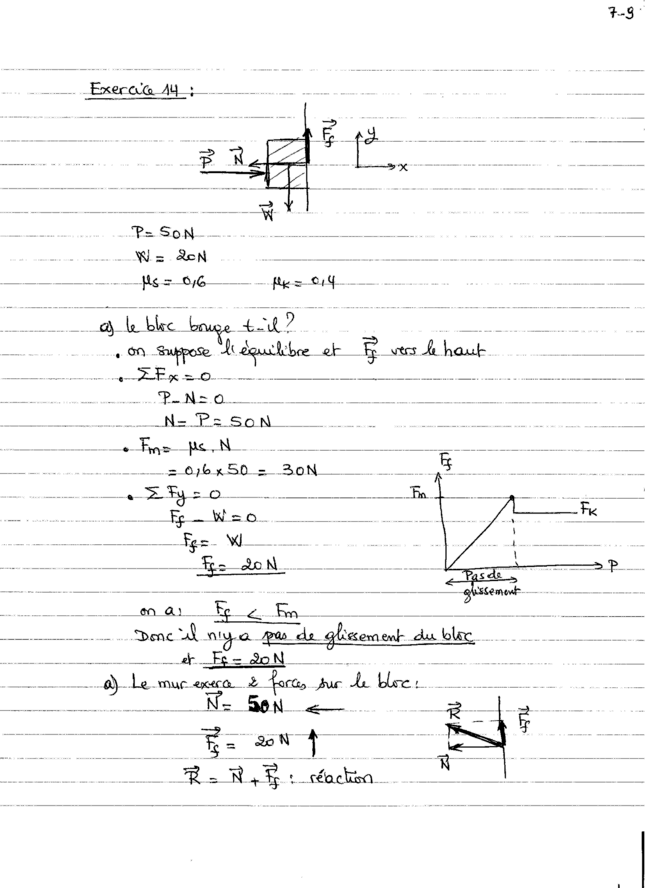 7-9
Exercice 14 :
F⃗f
y
P⃗ N⃗
x
W⃗
P = 50N
W = 20N
μs = 0,6 μK = 0,4
a) le bloc bouge t-il ?
• on suppose l'équilibre et F⃗f vers le haut
• ΣFx = 0
P - N = 0
N = P = 50N
• Fm = μs . N
= 0,6 x 50 = 30N
• ΣFy = 0
Ff - W = 0
Ff = W
Ff = 20N
Ff
Fm
FK
P
Pas de
glissement
on a : Ff < Fm
Donc il n'y a pas de glissement du bloc
et Ff = 20N
a) Le mur exerce 2 forces sur le bloc :
N⃗ = 50N ←
F⃗f = 20N ↑
R⃗ = N⃗ + F⃗f : réaction
R⃗ F⃗f
N⃗